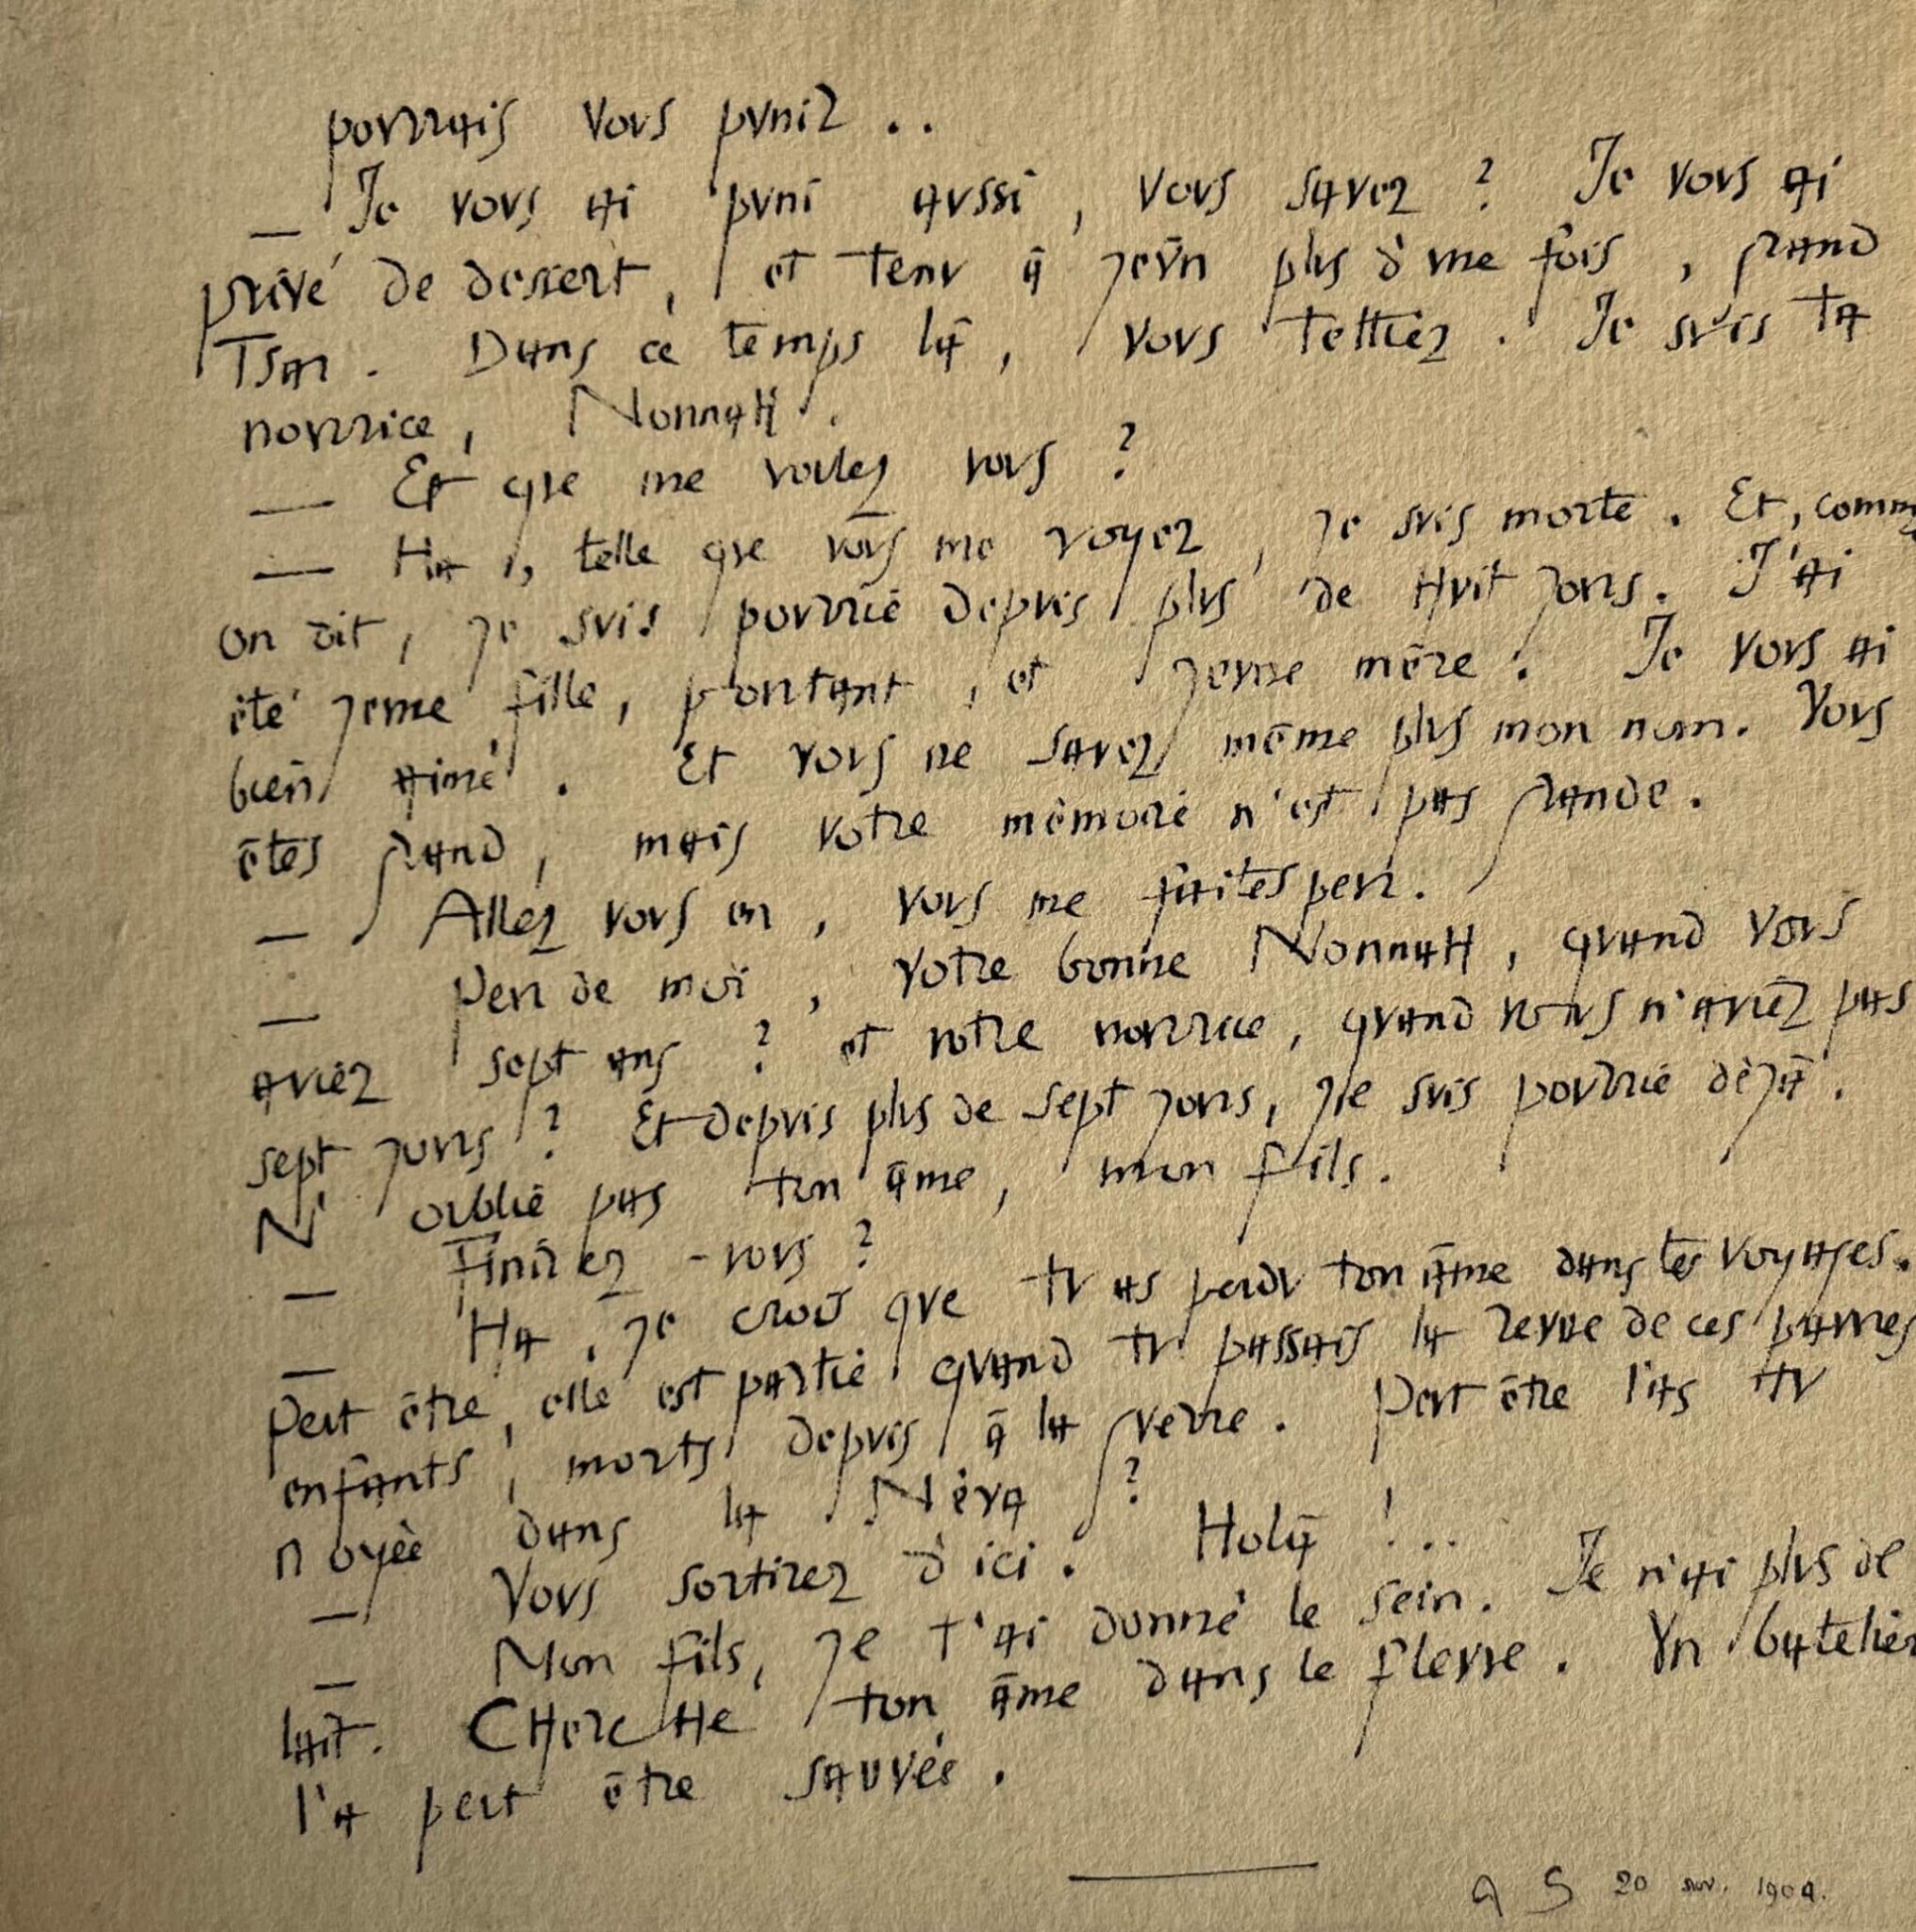 pourrais vous punir ..
— Je vous ai puni aussi, vous savez ? Je vous ai
privé de dessert, et tenu à jeûn plus d'une fois, grand
Tsar. Dans ce temps là, vous tettiez. Je suis ta
nourrice, Nonnah.
— Et que me voulez vous ?
— Ha !, telle que vous me voyez, je suis morte. Et, comme
on dit, je suis pourrie depuis plus de huit jours. J'ai
été jeune fille, pourtant, et jeune mère. Je vous ai
bien aimé. Et vous ne savez même plus mon nom. Vous
êtes grand, mais votre mémoire n'est pas grande.
— Allez vous en, vous me faites peur.
— Peur de moi, votre bonne Nonnah, quand vous
aviez sept ans ? et votre nourrice, quand vous n'aviez pas
sept jours ? Et depuis plus de sept jours, je suis pourrie déjà.
N'oublie pas ton âme, mon fils.
— Finirez-vous ?
— Ha, je crois que tu as perdu ton âme dans tes voyages.
Peut être, elle est partie quand tu passais la revue de ces pauvres
enfants, morts depuis à la guerre. Peut être l'as tu
noyée dans la Néva ?
— Vous sortirez d'ici. Holà !...
— Mon fils, je t'ai donné le sein. Je n'ai plus de
lait. Cherche ton âme dans le fleuve. Un batelier
l'a peut être sauvée.
A S 20 nov. 1904.